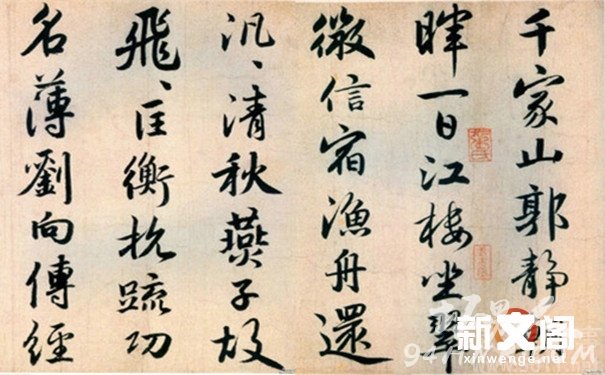 千家山郭靜
暉一日江樓坐翠
微信宿漁舟還
汎、清秋燕子故
飛、匡衡抗疏功
名薄劉向傳經
新文阁
xinwenge.net